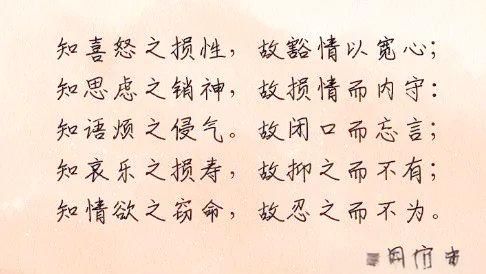 知喜怒之损性，故豁情以宽心；
知思虑之销神，故损情而内守：
知语烦之侵气。故闭口而忘言；
知哀乐之损寿，故抑之而不有；
知情欲之窃命，故忍之而不为。